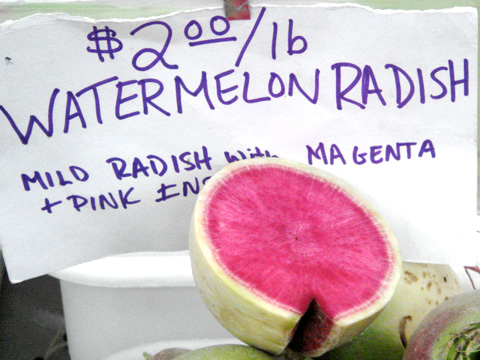 $2.00/lb
WATERMELON RADISH
MILD RADISH with MAGENTA
+ PINK